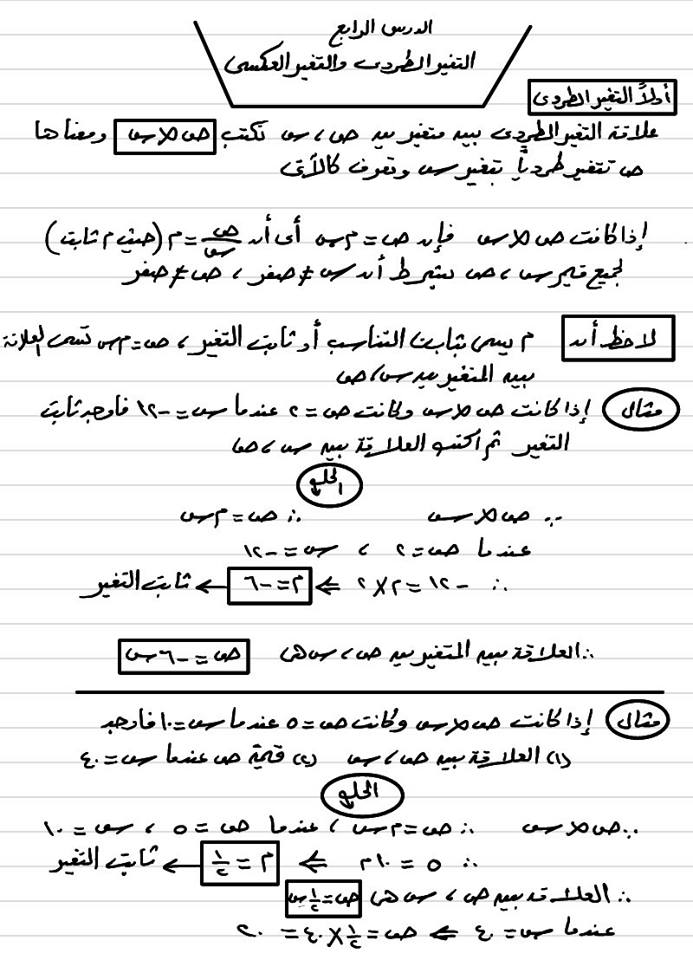 الدرس الرابع
التغير الطردى والتغير العكسى
أولاً التغير الطردى
علاقة التغير الطردى بين متغيرين ص ، س تكتب ص ∝ س ومعناها
ص تتغير طردياً بتغير س وتعرف كالآتى
إذا كانت ص ∝ س فإن ص = م س أى أن ص/س = م (حيث م ثابت)
لجميع قيم س ، ص بشرط أن س ≠ صفر ، ص ≠ صفر
لاحظ أن م يسمى ثابت التناسب أو ثابت التغير ، ص = م س تسمى العلاقة
بين المتغيرين س ، ص
مثال إذا كانت ص ∝ س وكانت ص = ٢ عندما س = -١٢ فأوجد ثابت
التغير ثم اكتب العلاقة بين س ، ص
الحل
∵ ص ∝ س ∴ ص = م س
عندما ص = ٢ ، س = -١٢
∴ -١٢ = م × ٢ ⇐ م = -٦ ← ثابت التغير
∴ العلاقة بين المتغيرين ص ، س هى ص = -٦ س
مثال إذا كانت ص ∝ س وكانت ص = ٥ عندما س = ١٠ فأوجد
(١) العلاقة بين ص ، س (٢) قيمة ص عندما س = ٤٠
الحل
∵ ص ∝ س ∴ ص = م س ، عندما ص = ٥ ، س = ١٠
∴ ٥ = ١٠ م ⇐ م = ١/٢ ← ثابت التغير
∴ العلاقة بين ص ، س هى ص = ١/٢ س
عندما س = ٤٠ ⇐ ص = ١/٢ × ٤٠ = ٢٠